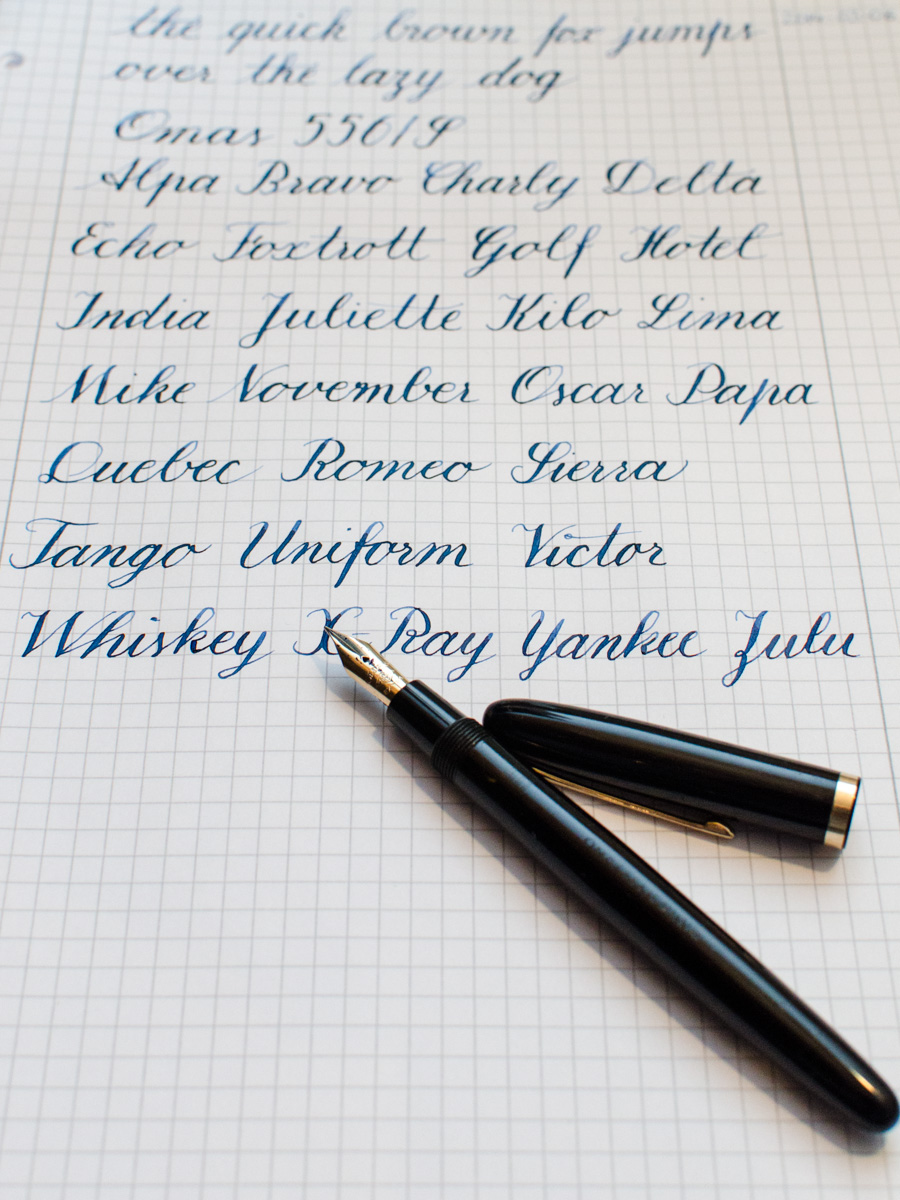 the quick brown fox jumps
over the lazy dog
Omas 556/S
Alpa Bravo Charly Delta
Echo Foxtrott Golf Hotel
India Juliette Kilo Lima
Mike November Oscar Papa
Quebec Romeo Sierra
Tango Uniform Victor
Whiskey X-Ray Yankee Zulu